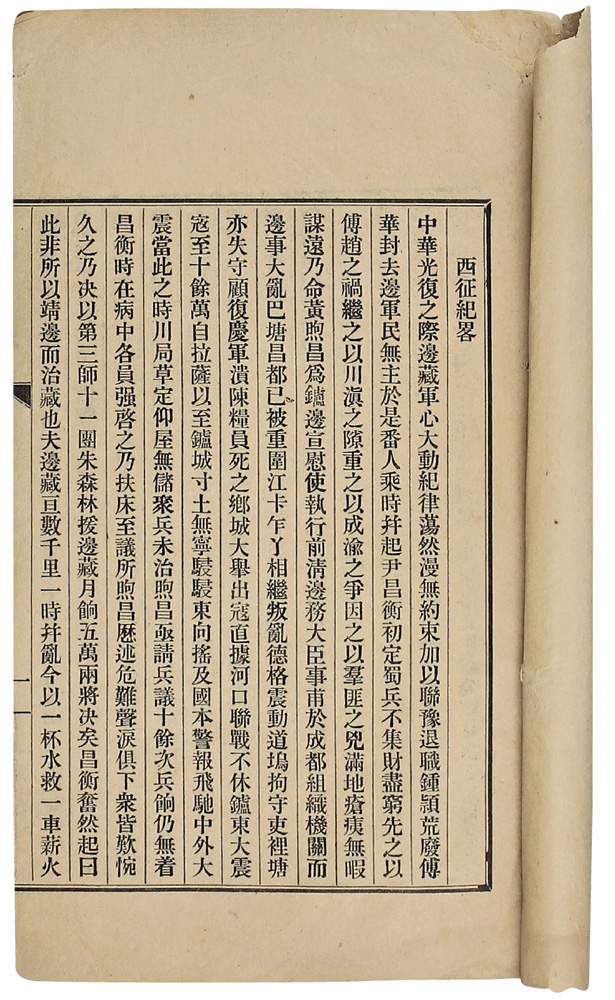 西征紀畧
中華光復之際邊藏軍心大動紀律蕩然漫無約束加以聯豫退職鍾頴荒廢傅
華封去邊軍民無主於是番人乘時幷起尹昌衡初定蜀兵不集財盡窮先之以
傅趙之禍繼之以川滇之隙重之以成渝之爭因之以羣匪之兇滿地瘡痍無暇
謀遠乃命黃煦昌爲鑪邊宣慰使執行前淸邊務大臣事甫於成都組織機關而
邊事大亂巴塘昌都已被重圍江卡乍丫相繼叛亂德格震動道塢拘守吏裡塘
亦失守顧復慶軍潰陳糧員死之鄉城大舉出寇直據河口聯戰不休鑪東大震
寇至十餘萬自拉薩以至鑪城寸土無寧駸駸東向搖及國本警報飛馳中外大
震當此之時川局草定仰屋無儲聚兵未治煦昌亟請兵議十餘次兵餉仍無着
昌衡時在病中各員强啓之乃扶床至議所煦昌歷述危難聲淚俱下衆皆歎惋
久之乃决以第三師十一團朱森林援邊藏月餉五萬兩將决矣昌衡奮然起曰
此非所以靖邊而治藏也夫邊藏亘數千里一時幷亂今以一杯水救一車薪火
一